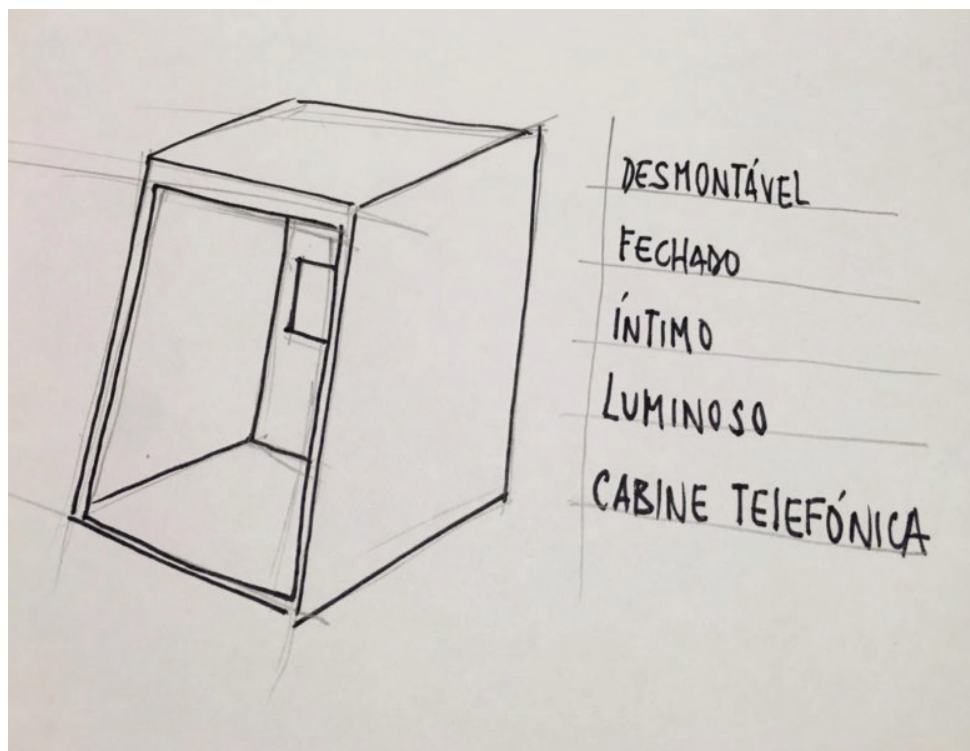 DESMONTÁVEL
FECHADO
ÍNTIMO
LUMINOSO
CABINE TELEFÓNICA